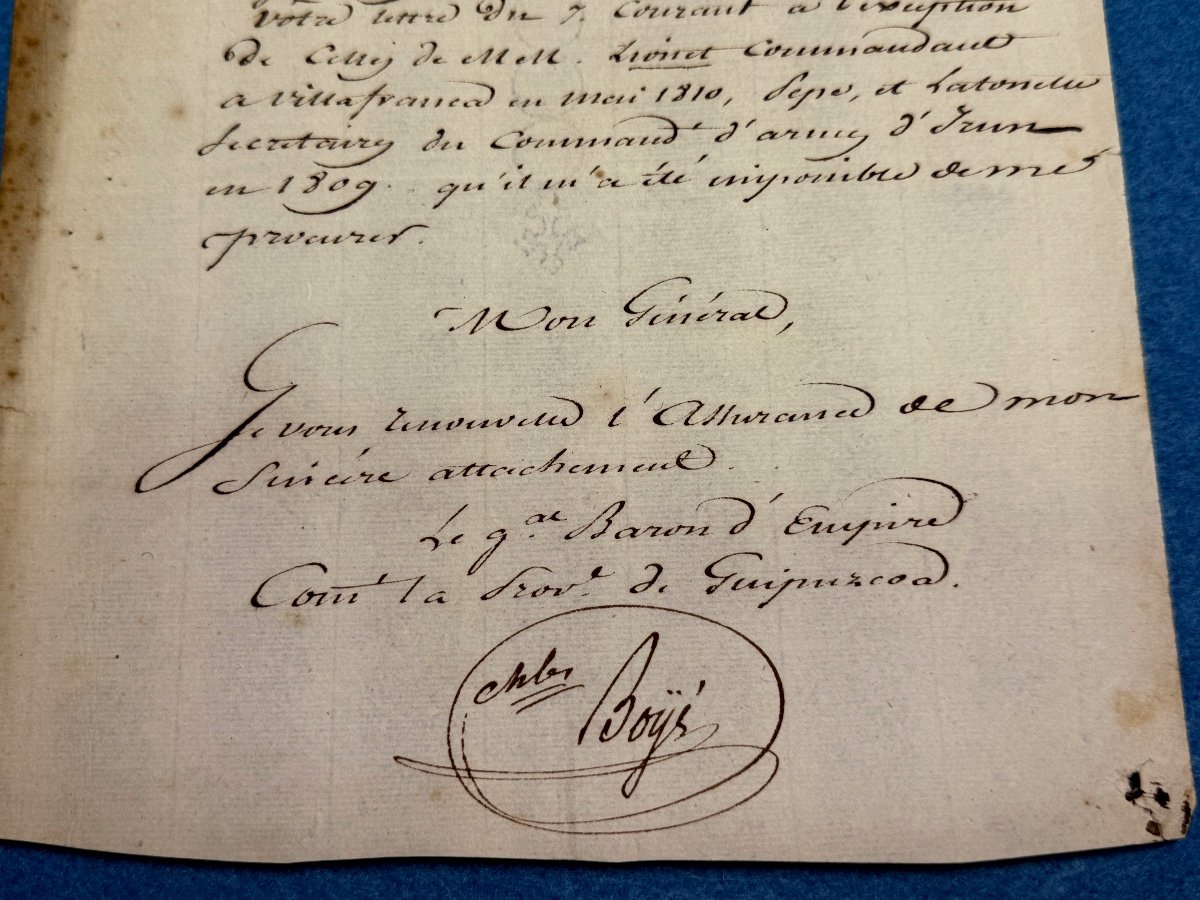 Votre lettre du 7. Courant a l'exception
de Celles de MM. Lionet Commandant
a Villafranca en mai 1810, Pepe, et Latonelle
Secretaires du Command.t d'armes d'Irun
en 1809. qu'il m'a été impossible de me
procurer.
Mon Général,
Je vous renouvelle l'Assurance de mon
Sincère attachement.
Le g.al Baron d'Empire
Com.t la Prov.e de Guipuzcoa.
Boyé